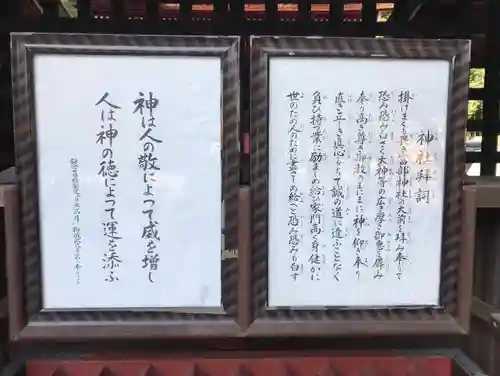 神社拝詞
掛けまくも畏き 神社の大前を拝み奉りて
恐み恐みも白さく大神等の広き厚き御恵を辱み
奉り高き尊き御教のまにまに神を仰ぎ奉り
直き正しき真心もちて誠の道に違ふことなく
負ひ持つ業に励ましめ給ひ家門高く身健かに
世のため人のために尽さしめ給へと恐み恐みも白す
神は人の敬によって威を増し
人は神の徳によって運を添ふ